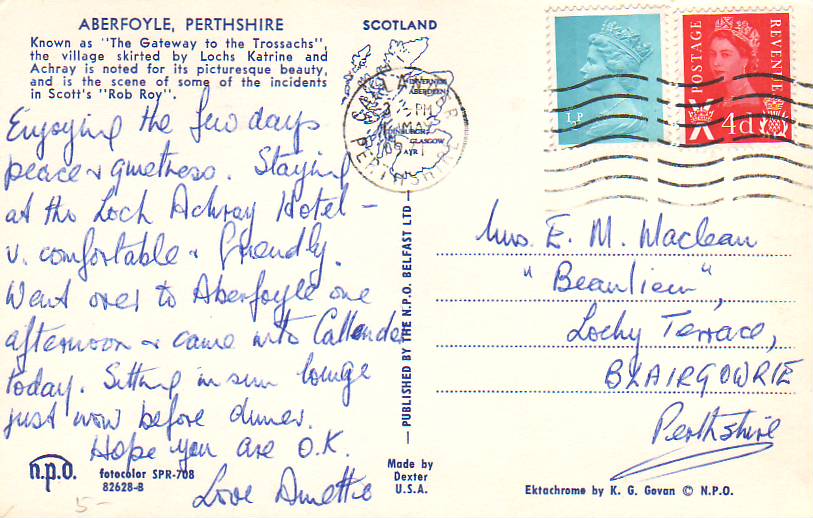 ABERFOYLE, PERTHSHIRE
Known as "The Gateway to the Trossachs",
the village skirted by Lochs Katrine and
Achray is noted for its picturesque beauty,
and is the scene of some of the incidents
in Scott's "Rob Roy".
Enjoying the few days
peace & quietness. Staying
at the Loch Achray Hotel –
v. comfortable & friendly.
Went over to Aberfoyle one
afternoon & came into Callander
today. Sitting in sun lounge
just now before dinner.
Hope you are O.K.
Love
n.p.o.
fotocolor SPR-708
82628-B
5-
SCOTLAND
INVERNESS
ABERDEEN
EDINBURGH
GLASGOW
AYR
CALLANDER
PM
MAY
PERTHSHIRE
— PUBLISHED BY THE N.P.O. BELFAST LTD —
Made by
Dexter
U.S.A.
½P
POSTAGE
REVENUE
4d
Mrs. E. M. Maclean
"Beaulieu",
Lochy Terrace,
BLAIRGOWRIE
Perthshire
Ektachrome by K. G. Govan © N.P.O.